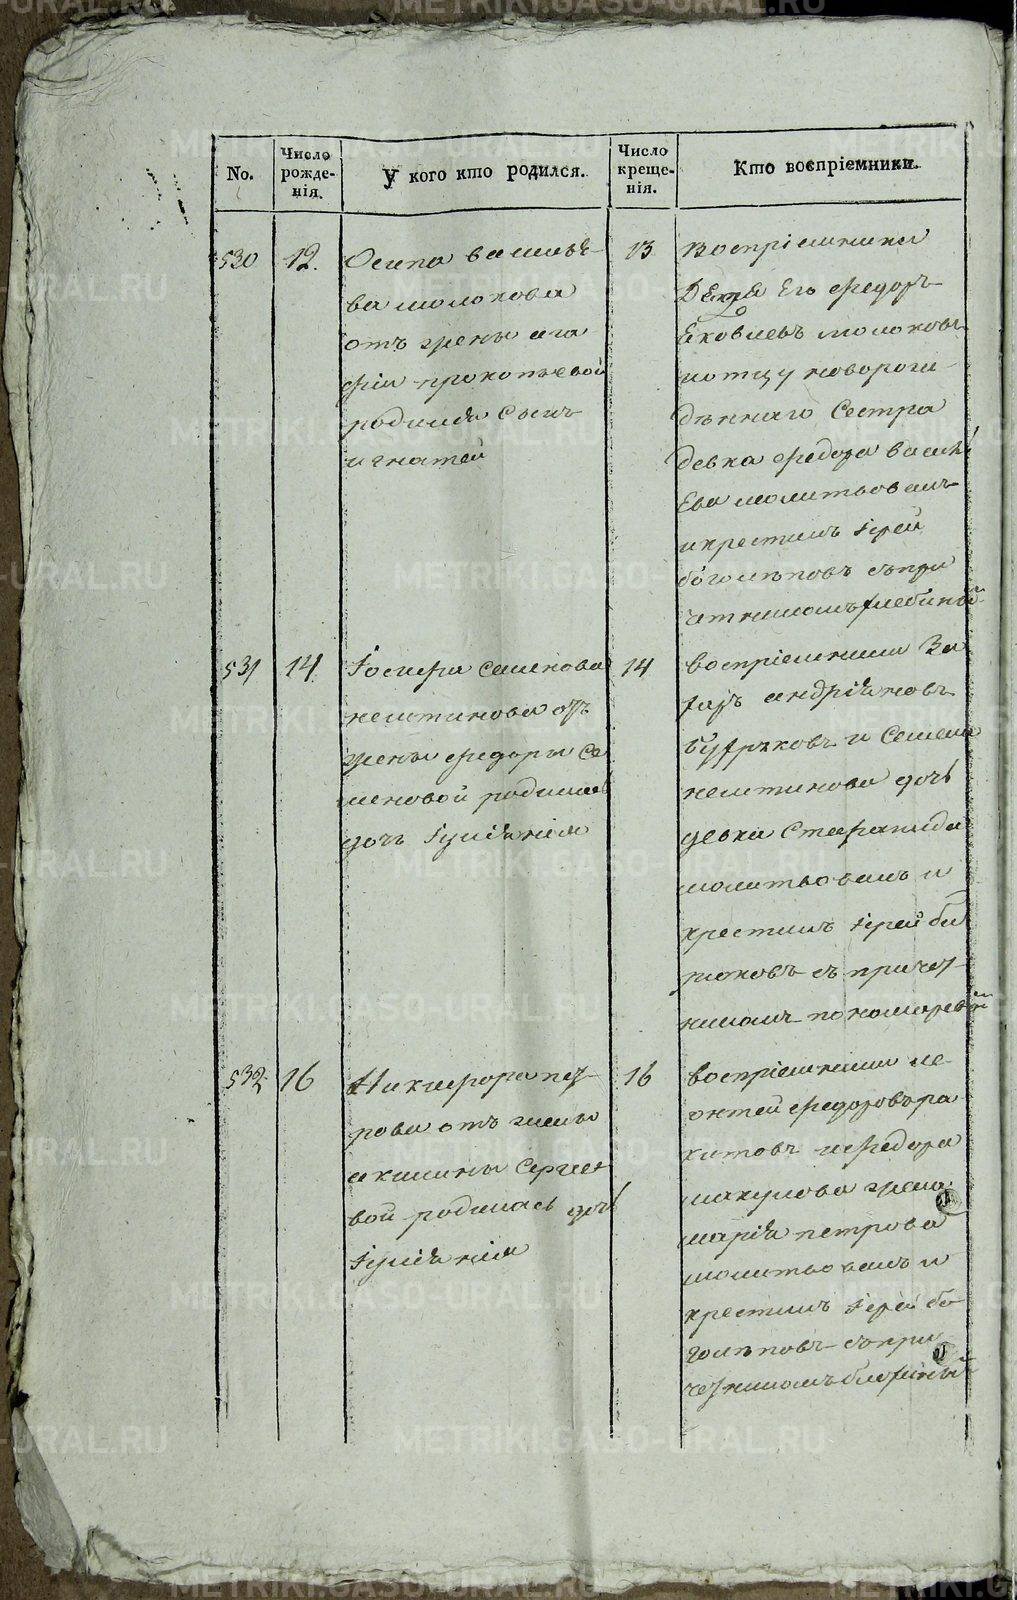 No.
Число рожде-нія.
У кого кто родился.
Число креще-нія.
Кто воспріемники.
530
12.
Осипа василье-
ва молокова
отъ жены ага
фіи прокопьевой
родился сынъ
игнатей
13
Воспріемники
Дедя Его федоръ
Яковлевъ молоковъ
и отцу новорож-
деннаго Сестра
девка федора василь
Ева молитвовалъ
и крестилъ Іерей
боголеповъ съ при
четникомъ
531
14
Іосифа семенова
кештинова отъ
жены федоры се
меновой родилась
дочь Іуліянія
14
воспріемники За
харъ андріяновъ
и Семена
кештинова дочь
девка Степанида
молитвовалъ и
крестилъ Іерей би
рюковъ съ причет
никомъ пономаревым
532
16
Никифора пет-
рова отъ жены
акилины Сергие
вой родилась дочь
Іуліянія
16
воспріемники ле-
онтей федоровъ ра
китовъ и федора
макулова жена
марія петрова
молитвовалъ и
крестилъ Іерей бо
голеповъ съ при
четникомъ
METRIKI.GASO-URAL.RU